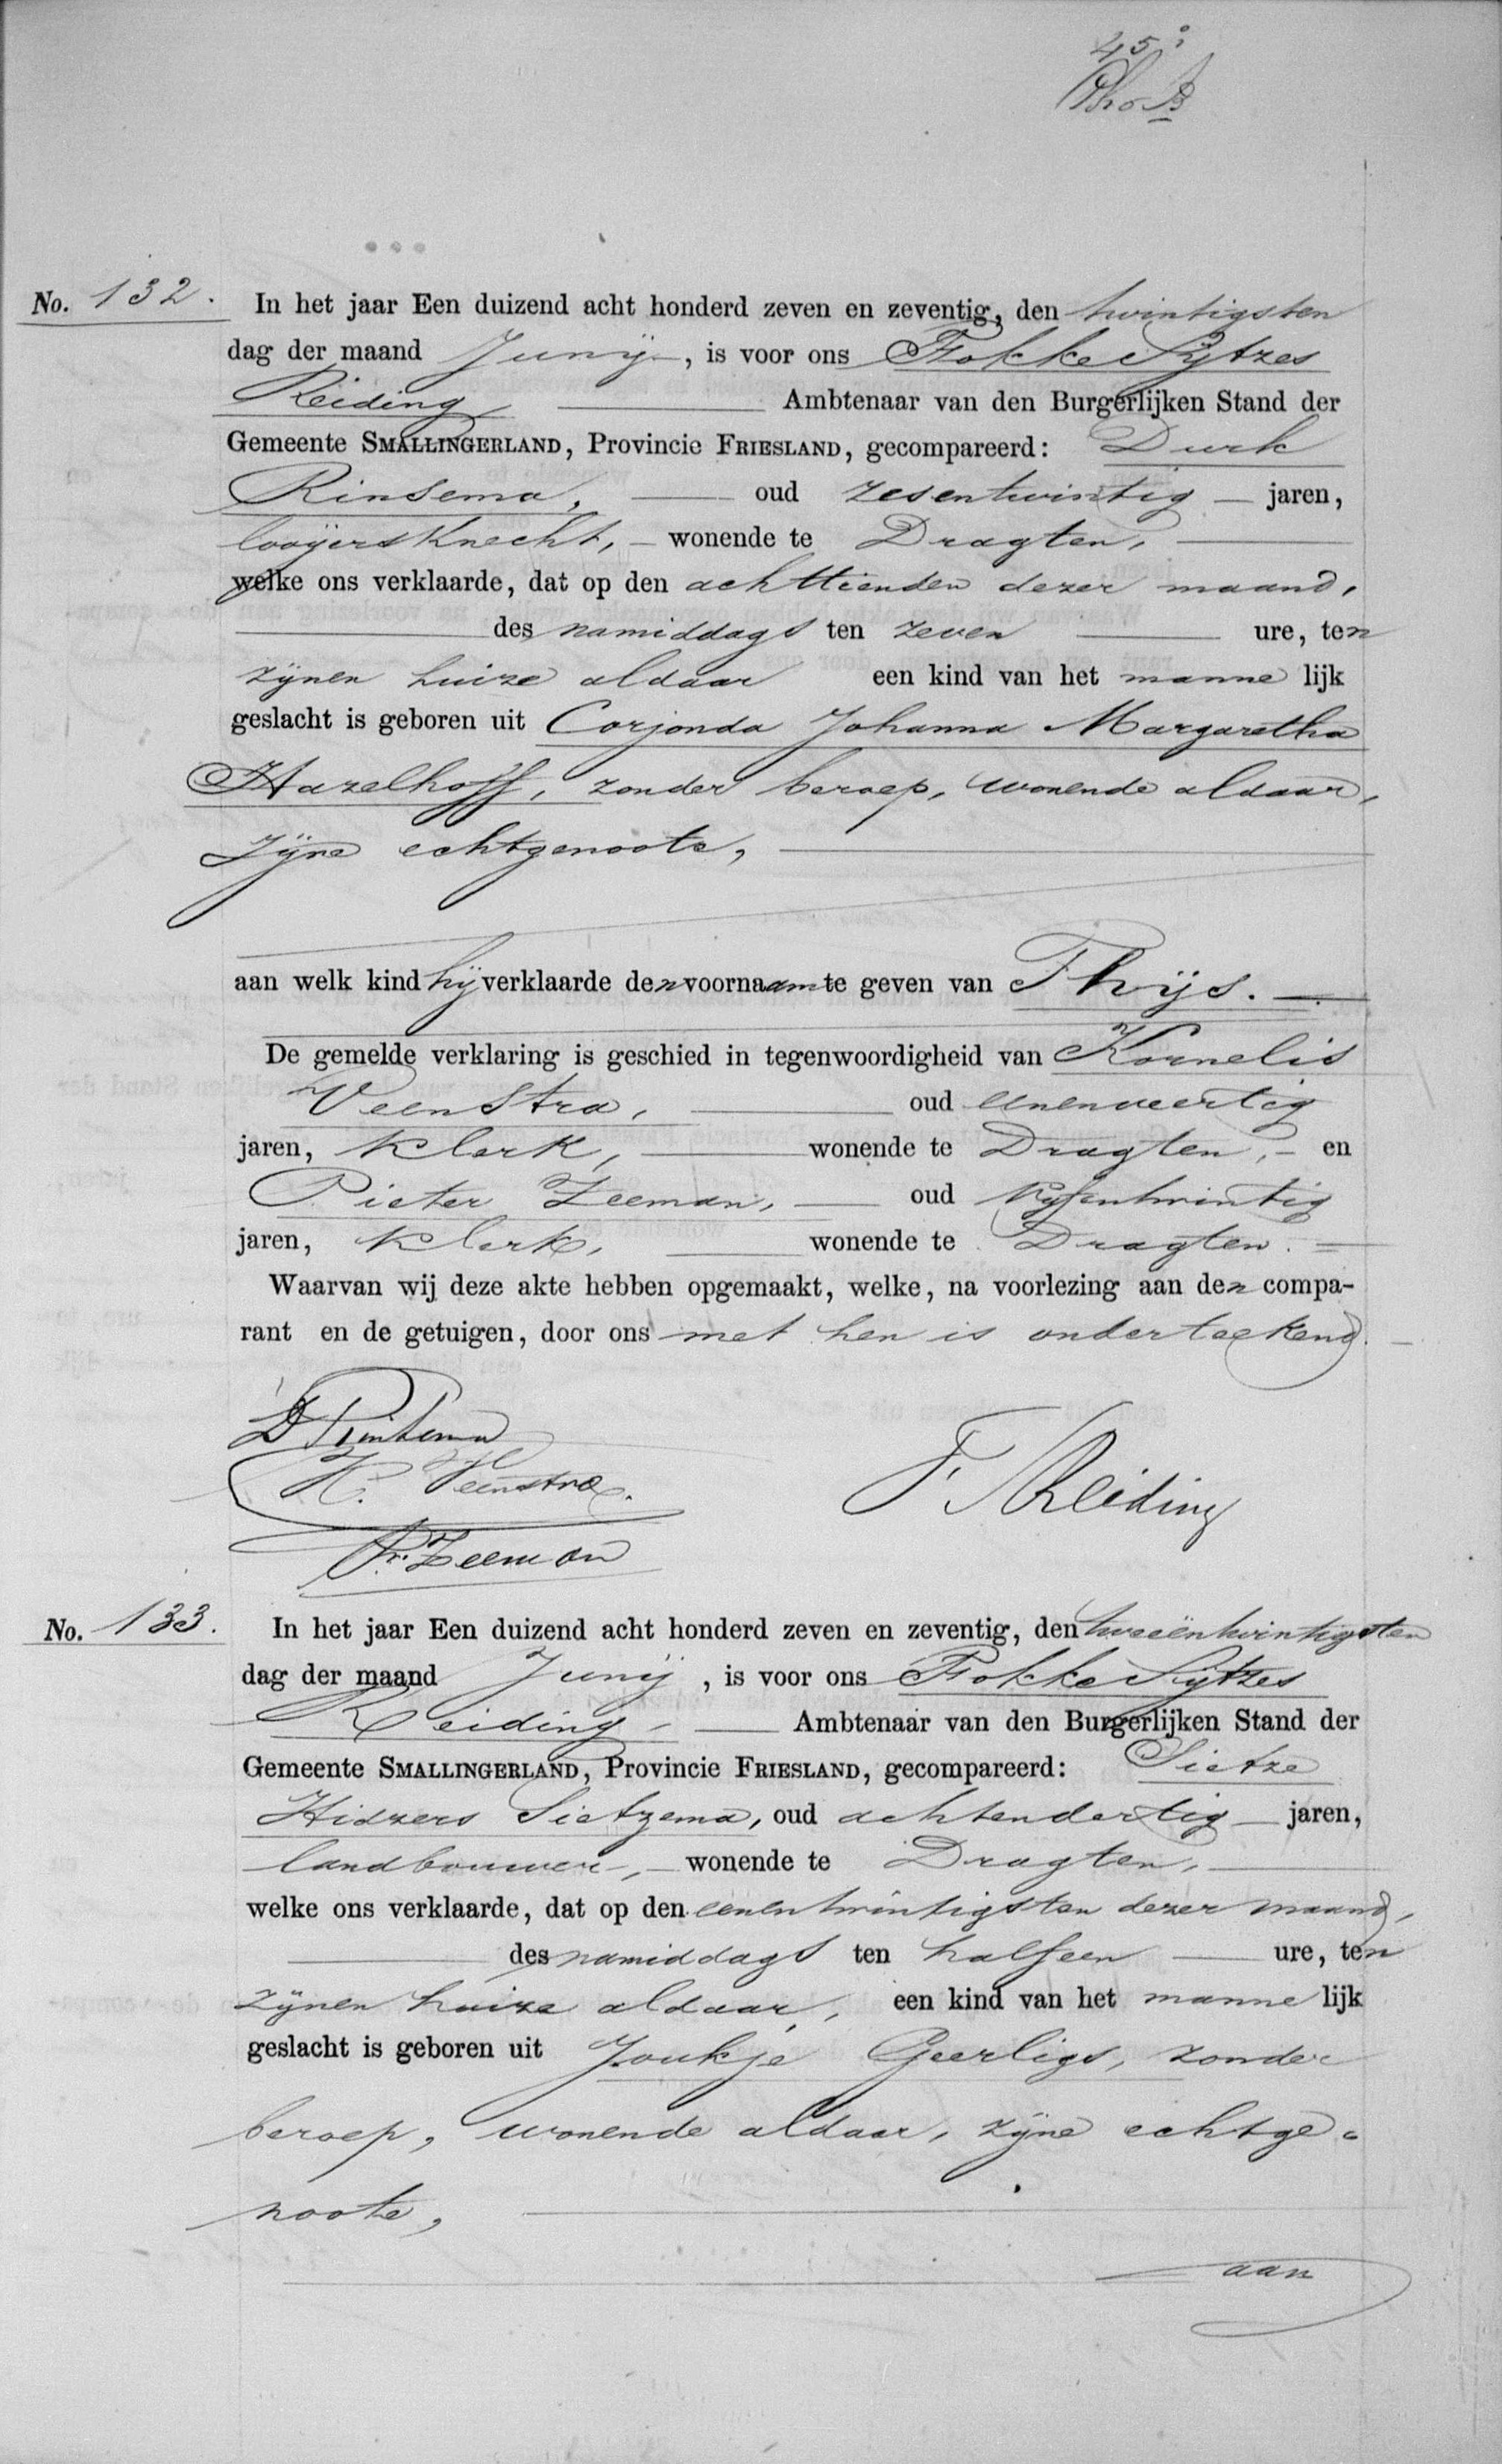 45e
No. 132. In het jaar Een duizend acht honderd zeven en zeventig, den twintigsten
dag der maand Junij, is voor ons Fokke Sytzes
Reiding Ambtenaar van den Burgerlijken Stand der
Gemeente SMALLINGERLAND, Provincie FRIESLAND, gecompareerd: Durk
Rinsema, oud zesentwintig jaren,
looijersknecht, wonende te Dragten,
welke ons verklaarde, dat op den achttienden dezer maand,
des namiddags ten zeven ure, ten
zijnen huize aldaar een kind van het mannelijk
geslacht is geboren uit Corjonda Johanna Margaretha
Hazelhoff, zonder beroep, wonende aldaar,
zijne echtgenoote,
aan welk kind hij verklaarde den voornaam te geven van Thijs.
De gemelde verklaring is geschied in tegenwoordigheid van Kornelis
Veenstra, oud eenenveertig
jaren, klerk, wonende te Dragten, en
Pieter Zeeman, oud vijfentwintig
jaren, klerk, wonende te Dragten.
Waarvan wij deze akte hebben opgemaakt, welke, na voorlezing aan den compa-
rant en de getuigen, door ons met hen is onderteekend.
D Rinsema
K. Veenstra.
F S Reiding
P. Zeeman
No. 133. In het jaar Een duizend acht honderd zeven en zeventig, den tweeëntwintigsten
dag der maand Junij, is voor ons Fokke Sytzes
Reiding Ambtenaar van den Burgerlijken Stand der
Gemeente SMALLINGERLAND, Provincie FRIESLAND, gecompareerd: Sietze
Hidzers Sietzema, oud achtendertig jaren,
landbouwer, wonende te Dragten,
welke ons verklaarde, dat op den eenentwintigsten dezer maand,
des namiddags ten halfeen ure, ten
zijnen huize aldaar, een kind van het mannelijk
geslacht is geboren uit Joukje Geerligs, zonder
beroep, wonende aldaar, zijne echtge-
noote,
aan